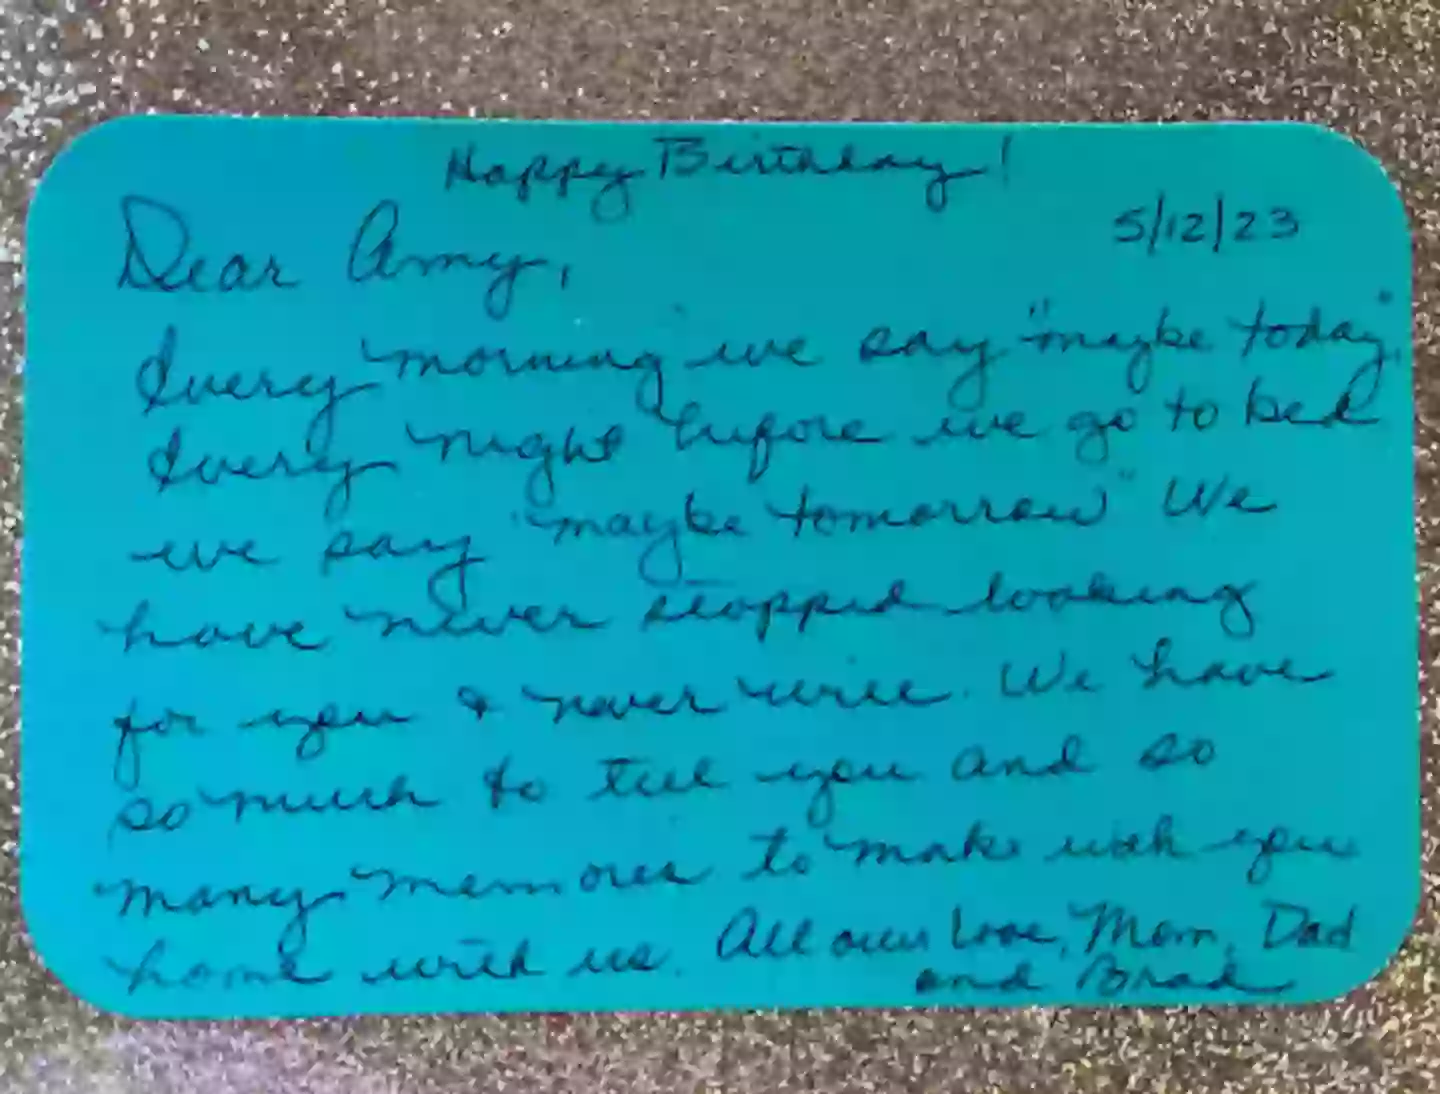 Happy Birthday!
5/12/23
Dear Amy,
Every morning we say "maybe today".
Every night before we go to bed
we say "maybe tomorrow" We
have never stopped looking
for you & never will. We have
so much to tell you and so
many memories to make with you
home with us. All our Love, Mom, Dad
and Brad